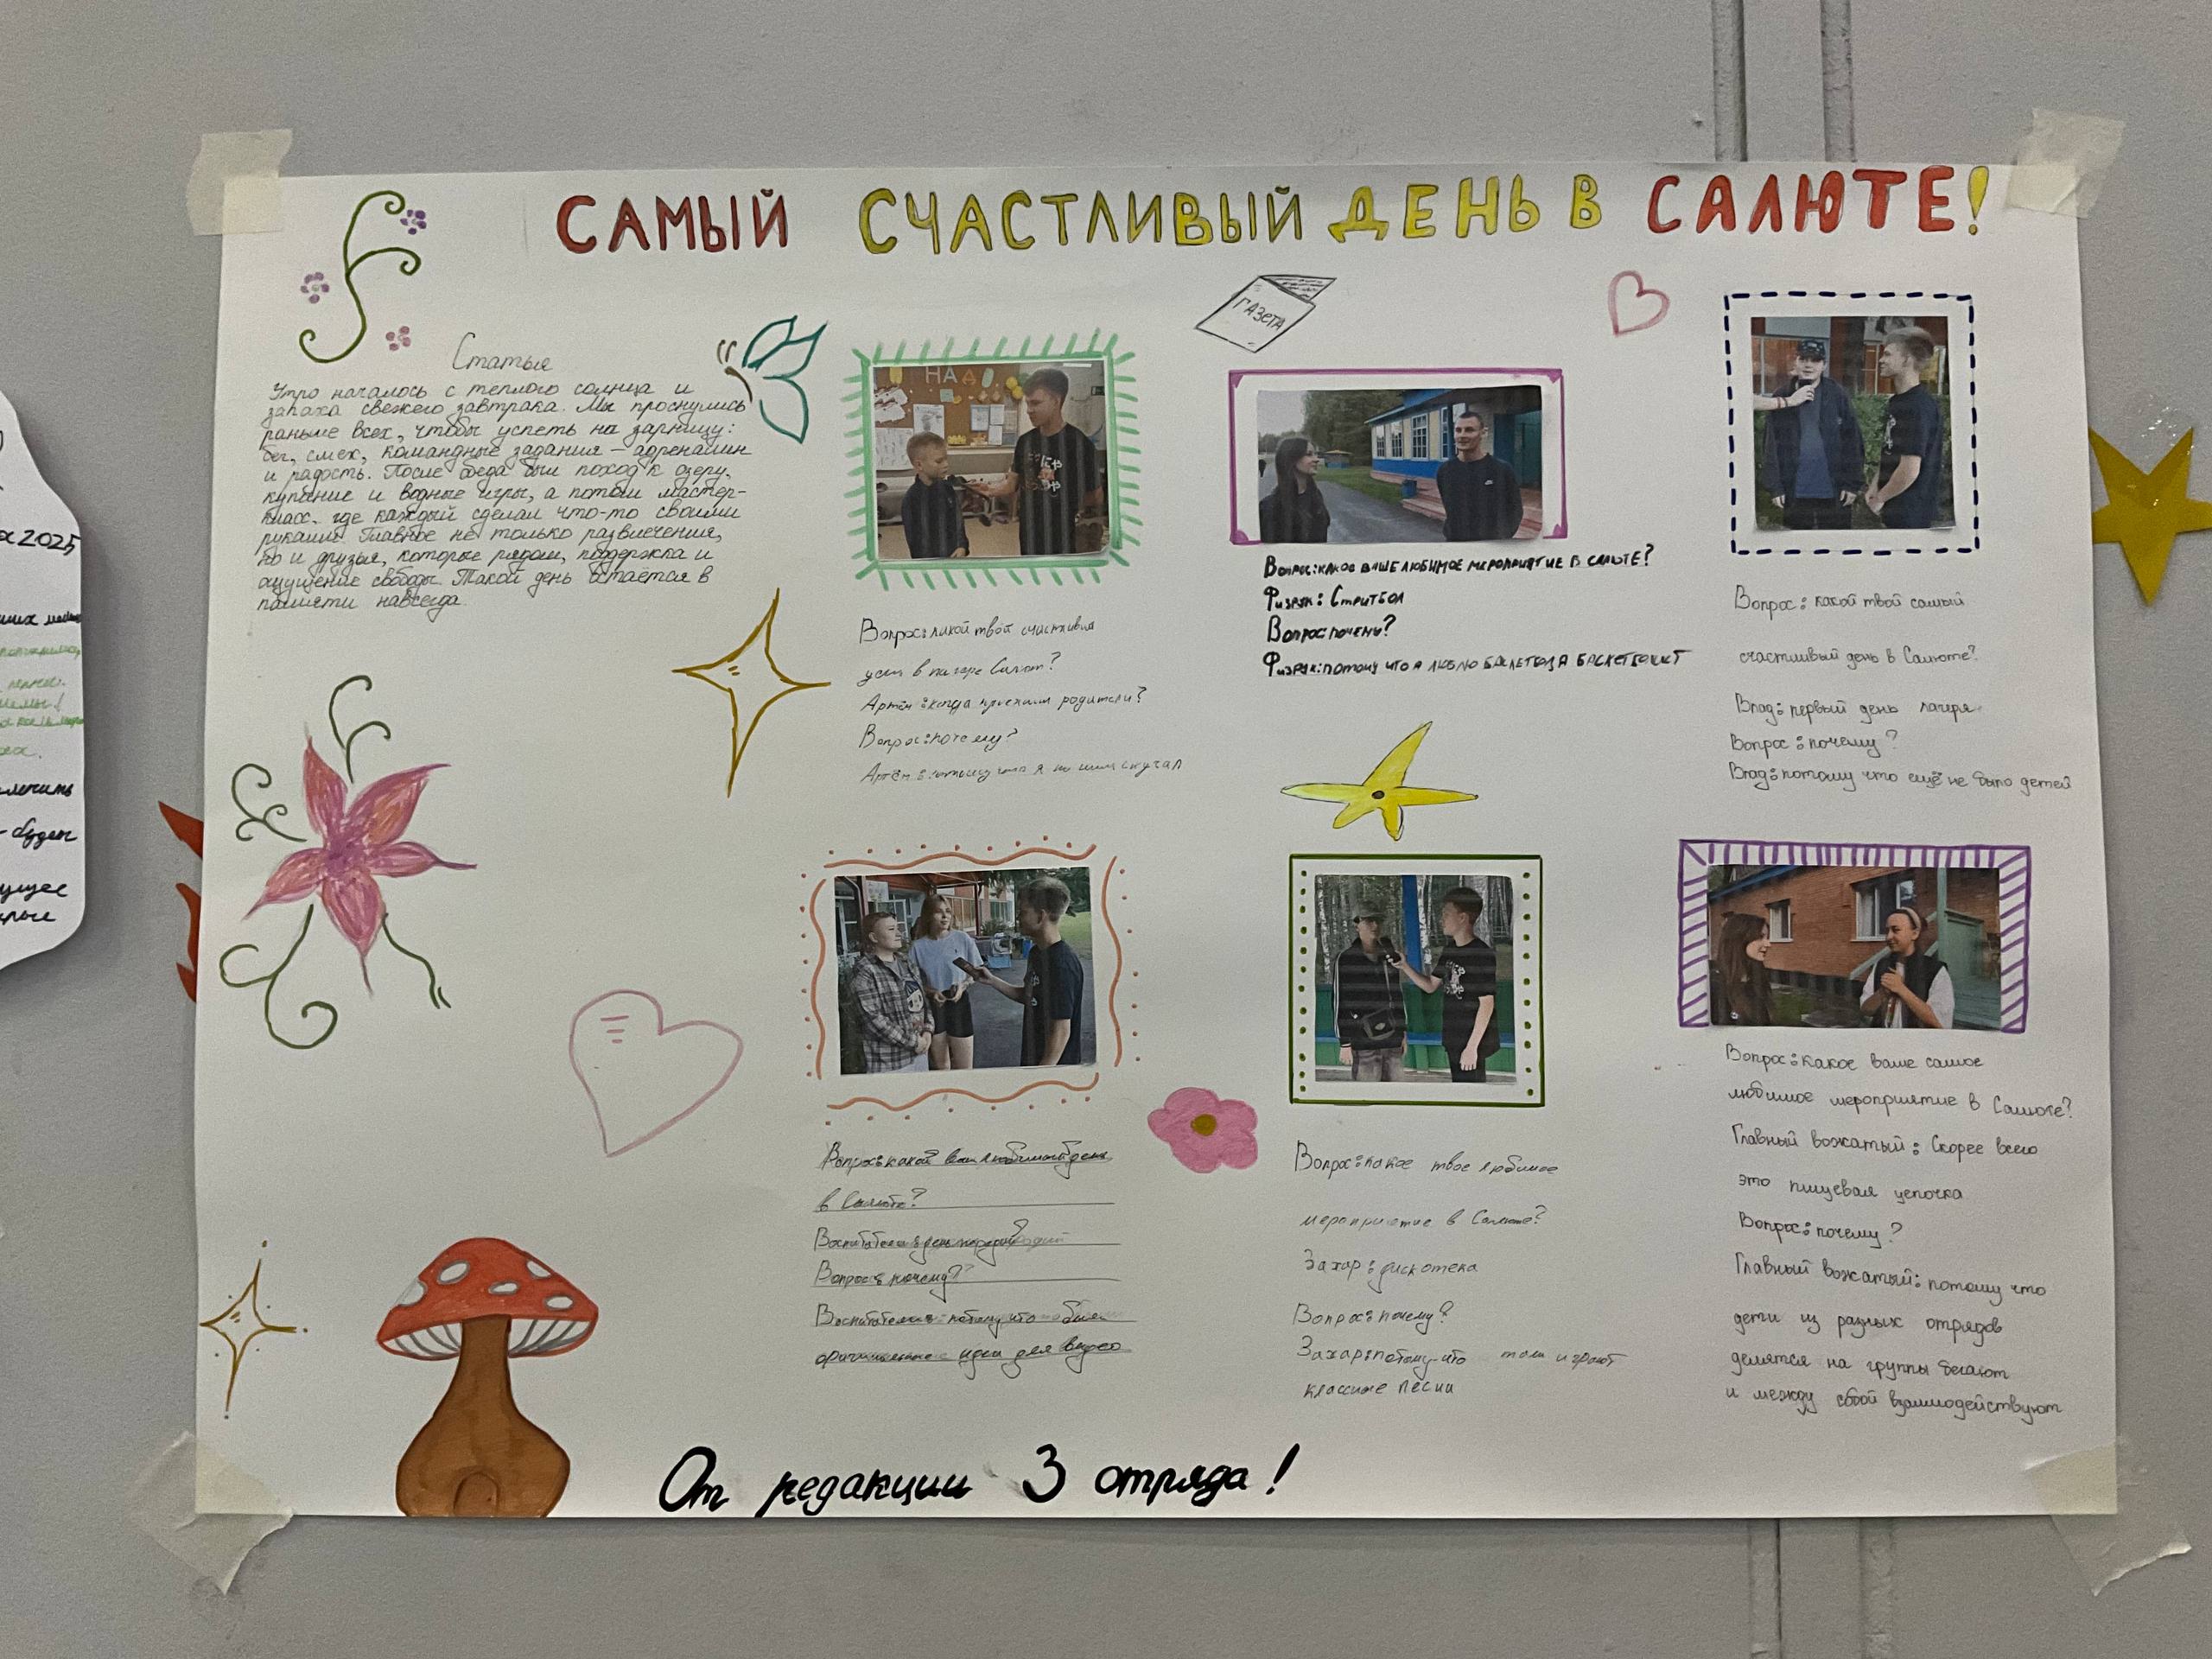 САМЫЙ СЧАСТЛИВЫЙ ДЕНЬ В САЛЮТЕ!
Статья
Утро началось с теплого солнца и
запаха свежего завтрака. Мы проснулись
раньше всех, чтобы успеть на зарницу:
бег, смех, командные задания – адреналин
и радость. После обеда был поход к озеру,
купание и водные игры, а потом мастер-
класс, где каждый сделал что-то своими
руками. Главное не только развлечения,
но и друзья, которые рядом, поддержка и
ощущение свободы. Такой день остаётся в
памяти навсегда.
НАД
Вопрос: какой твой счастливый
в лагере Салют?
Артём: когда приехали родители?
Вопрос: почему?
Артём: потому что я по ним скучал
ГАЗЕТА
Вопрос: какое ваше любимое мероприятие в Салюте?
Физрук: Стритбол
Вопрос: почему?
Физрук: потому что я люблю
Вопрос: какой твой самый
счастливый день в Салюте?
Влад: первый день лагеря
Вопрос: почему?
Влад: потому что ещё не было детей
Вопрос: какой ваш любимый день
в Салюте?
Вопрос: почему?
потому что были
идеи для видео
Вопрос: какое твое любимое
мероприятие в Салюте?
Захар: дискотека
Вопрос: почему?
Захар: потому-что там играют
классные песни
Вопрос: какое ваше самое
любимое мероприятие в Салюте?
Главный вожатый: Скорее всего
это пищевая цепочка
Вопрос: почему?
Главный вожатый: потому что
дети из разных отрядов
делятся на группы бегают
и между собой взаимодействуют
От редакции 3 отряда!
2025